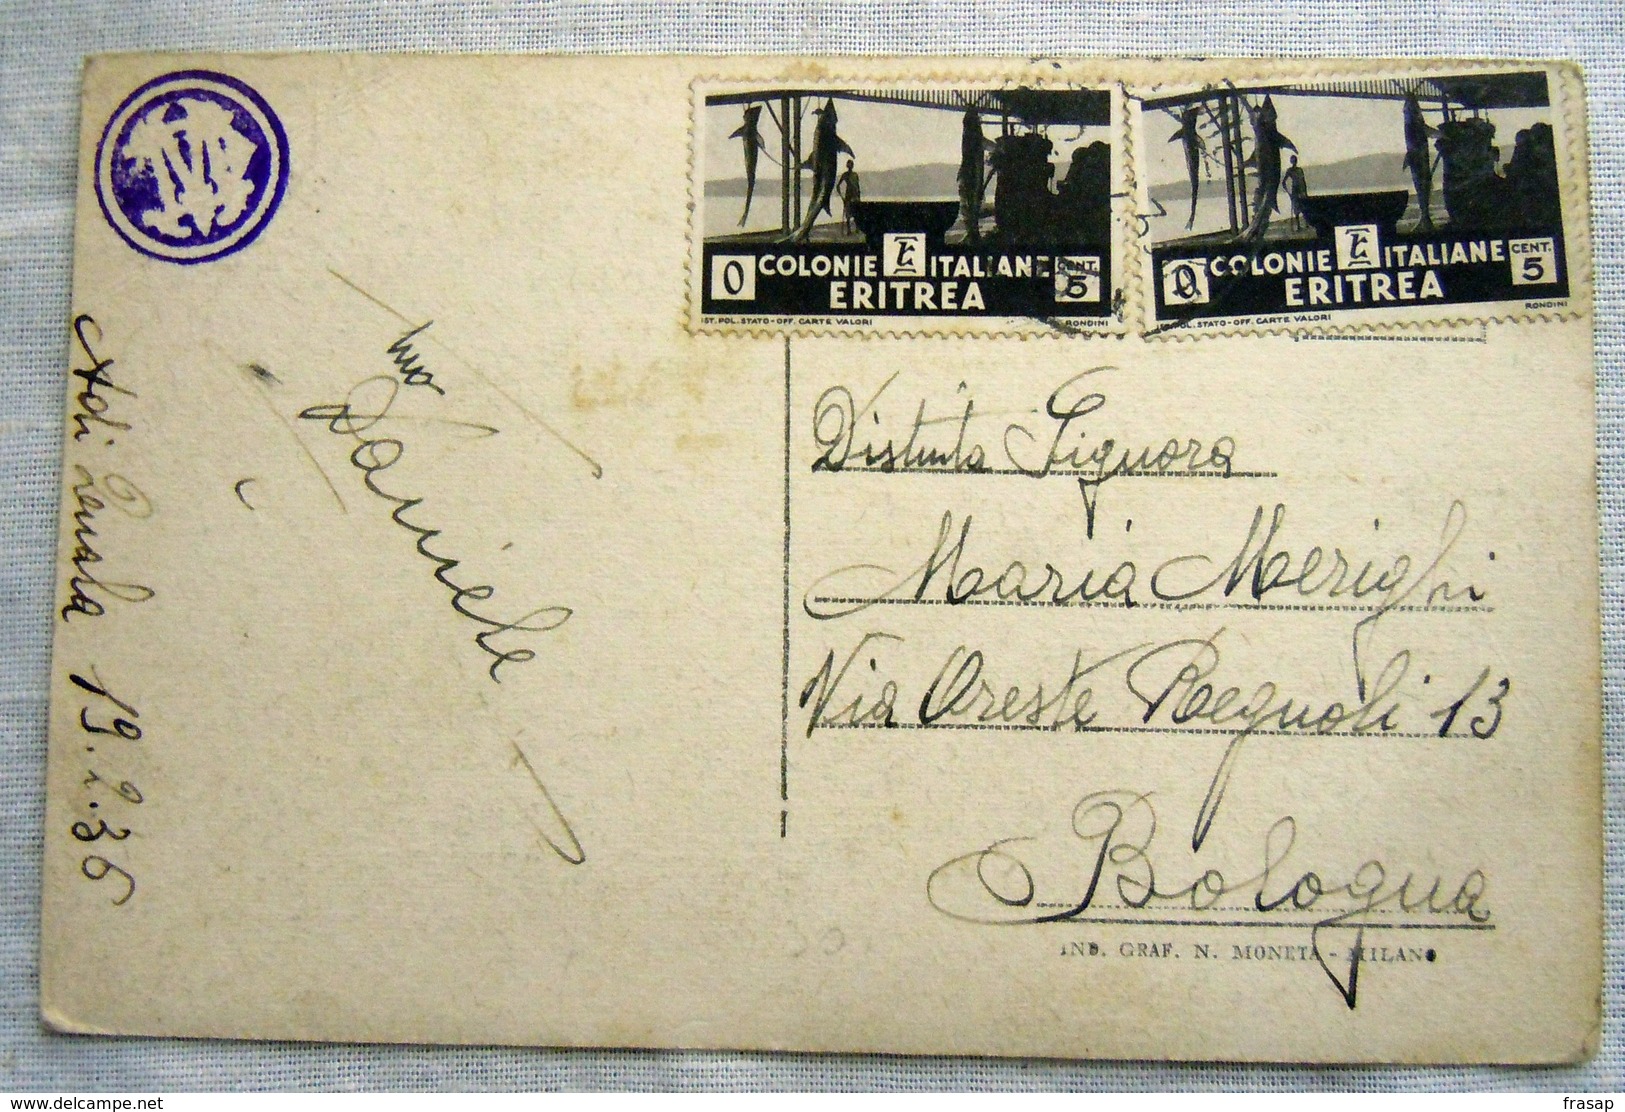 COLONIE ITALIANE
ERITREA
CENT. 5
IST. POL. STATO - OFF. CARTE VALORI
RONDINI
COLONIE ITALIANE
ERITREA
CENT. 5
IST. POL. STATO - OFF. CARTE VALORI
RONDINI
Adi 19.2.36
Daniele
Distinta Signora
Maria Merighi
Via Oreste Regnoli 13
Bologna
IND. GRAF. N. MONETA - MILANO
delcampe.net
frasap